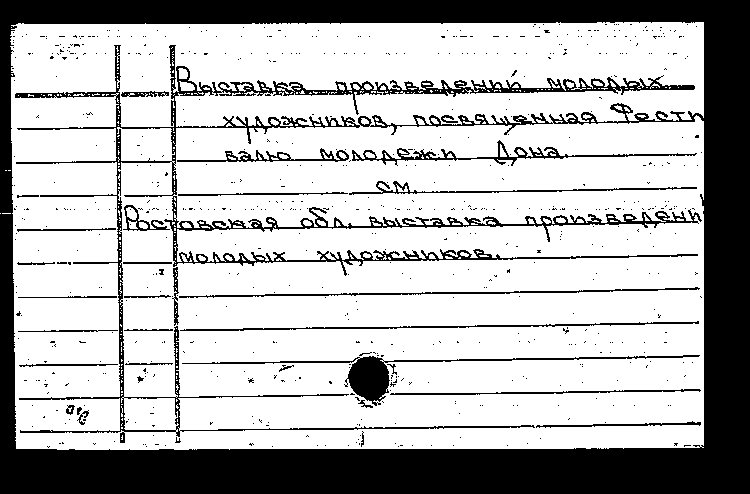 Выставка произведений молодых
художников, посвященная Фести
валю молодежи Дона.
см.
Ростовская обл. выставка произведений
молодых художников.